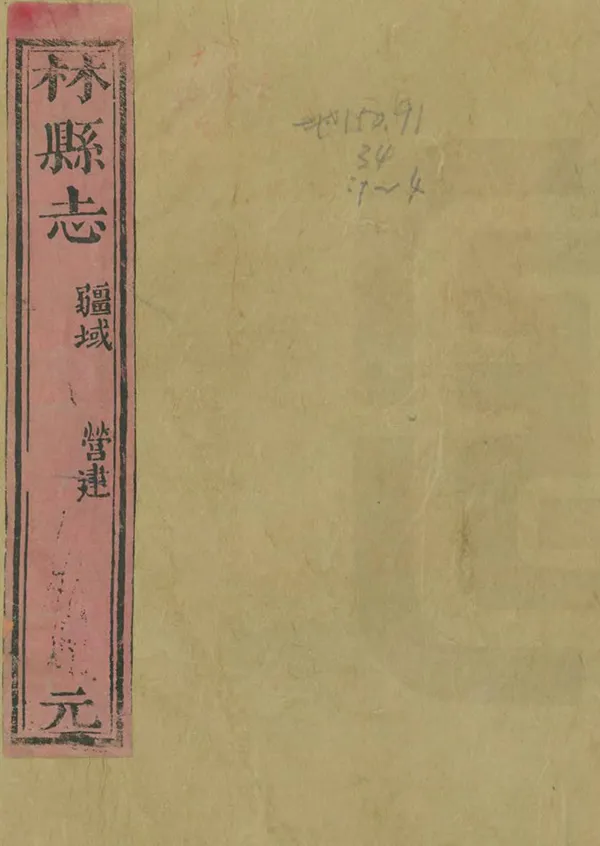 林縣志
疆域
營建
元
地150.91
34
:1~4